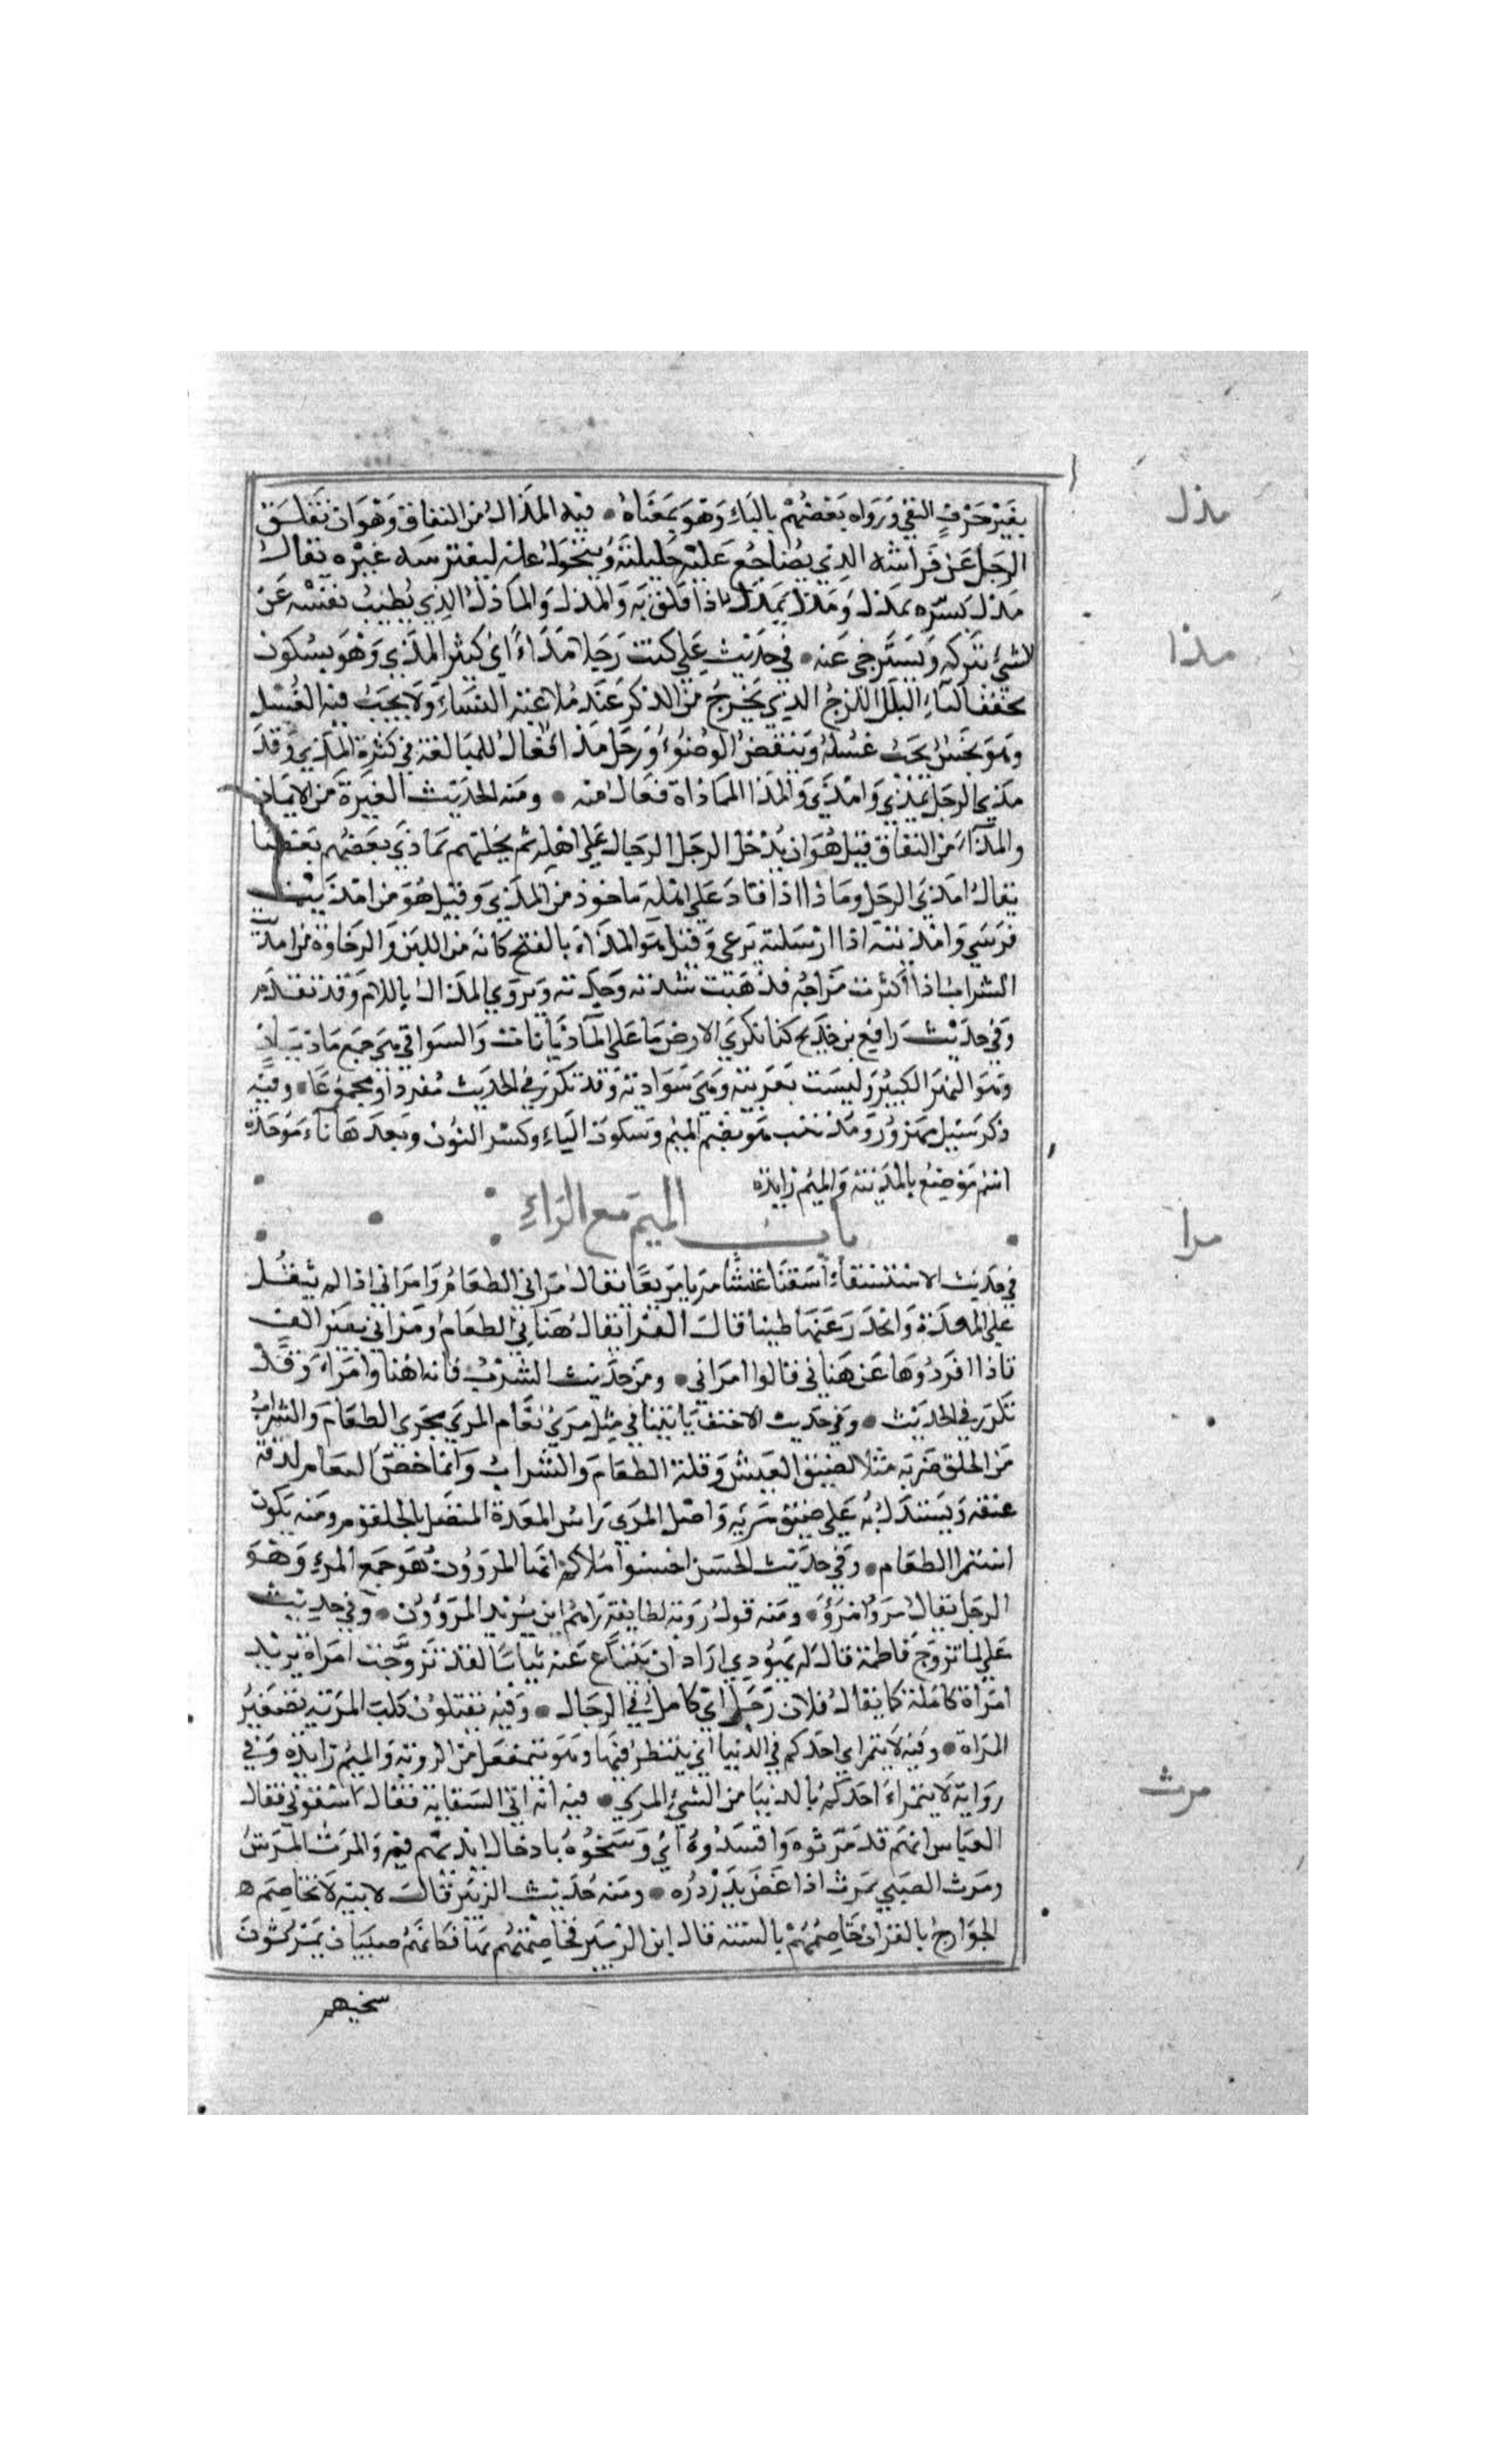 مذل
بغير حرف النفي ورواه بعضهم بالباء وهو بمعناه • فيه المذال من النفاق وهو ان تقلق
الرجل عن فراشه الذي يضاجع عليه حليلته ويتحول عنه ليفترسه غيره يقال
مذل بسره يمذل ومذل يمذل اذا قلق به والمذل والماذل الذي يطيب نفسه عن
مذا
لشئ يتركه ويسترخي عنه • في حديث علي كنت رجلا مذاءً اي كثير المذي وهو بسكون
مخفف الياء البلل اللزج الذي يخرج من الذكر عند ملاعبة النساء ولا يجب فيه الغسل
وهو نجس يجب غسله وينقض الوضوء ورجل مذا فعال للمبالغة في كثرة المذي وقد
مذي الرجل يمذي وامذي والمذا المماذاة فعال منه • ومنه الحديث الغيرة من الايمان
والمذاء من النفاق قيل هو ان يدخل الرجل الرجال علي اهله ثم يخليهم يماذي بعضهم بعضا
يقال امذي الرجل وماذا اذا قاد علي اهله ماخوذ من المذي وقيل هو من امذيت
فرسي وامذيته اذا ارسلته يرعي وقيل هو المذاء بالفتح كانه من اللين والرخاوة من امذيت
الشراب اذا اكثرت مزاجه فذهبت شدته وحدته ويروي المذال باللام وقد تقدم
وفي حديث رافع بن خديج كنا نكري الارض بما علي الماذيانات والسواقي هي جمع ماذيان
وهو النهر الكبير وليست بعربية وهي سوادية وقد تكرر في الحديث مفردا ومجموعا • وفيه
ذكر سيل مهزور ومذينب هو بضم الميم وسكون الياء وكسر النون وبعدها باء موحدة
اسم موضع بالمدينة والميم زايدة
باب الميم مع الراء
مرا
في حديث الاستسقاء اسقنا غيثا مريا مريعا يقال مراني الطعام وامراني اذا لم يثقل
علي المعدة وانحدر عنها طيبا قال الفرا يقال هناني الطعام ومراني بغير الف
فاذا افردوها عن هناني قالوا امراني • ومن حديث الشرب فانه اهنا وامرا وقد
تكرر في الحديث • وفي حديث الاحنف ياتينا في مثل مرئ نعام المري مجري الطعام والشراب
من الحلق ضربه مثلا لضيق العيش وقلة الطعام والشراب وانما خص النعام لدقة
عنقه ويستدل به علي ضيق مريه واصل المري راس المعدة المتصل بالحلقوم ومنه يكون
استمرا الطعام • وفي حديث الحسن احسنوا ملاكم ايها المرؤون هو جمع المرء وهو
الرجل يقال مرؤ وامرؤ • ومنه قول روبة لطايفة راهم اين يريد المرؤون • وفي حديث
علي لما تزوج فاطمة قال له يهودي اراد ان يبتاع عنه ثيابا لقد تزوجت امراة يريد
امراة كاملة كما يقال فلان رجل اي كامل في الرجال • وفيه يقتلون كلب المرئية تصغير
المراة • وفيه لا يتمراي احدكم في الدنيا اي ينتظر فيها وهو يتمفعل من الروية والميم زايدة وفي
مرث
رواية لا يتمراء احدكم بالدنيا من الشئ المري • فيه انه اتي السقاية فقال اسقوني فقال
العباس انهم قد مرثوه وافسدوه اي وسخوه بادخال ايديهم فيه والمرث المرس
ومرث الصبي يمرث اذا عض بدردره • ومنه حديث الزبير قال لابنه لا تخاصم
الخوارج بالقران خاصمهم بالسنة قال ابن الزبير فخاصمتهم بها فكانهم صبيان يمرثون
سخبهم